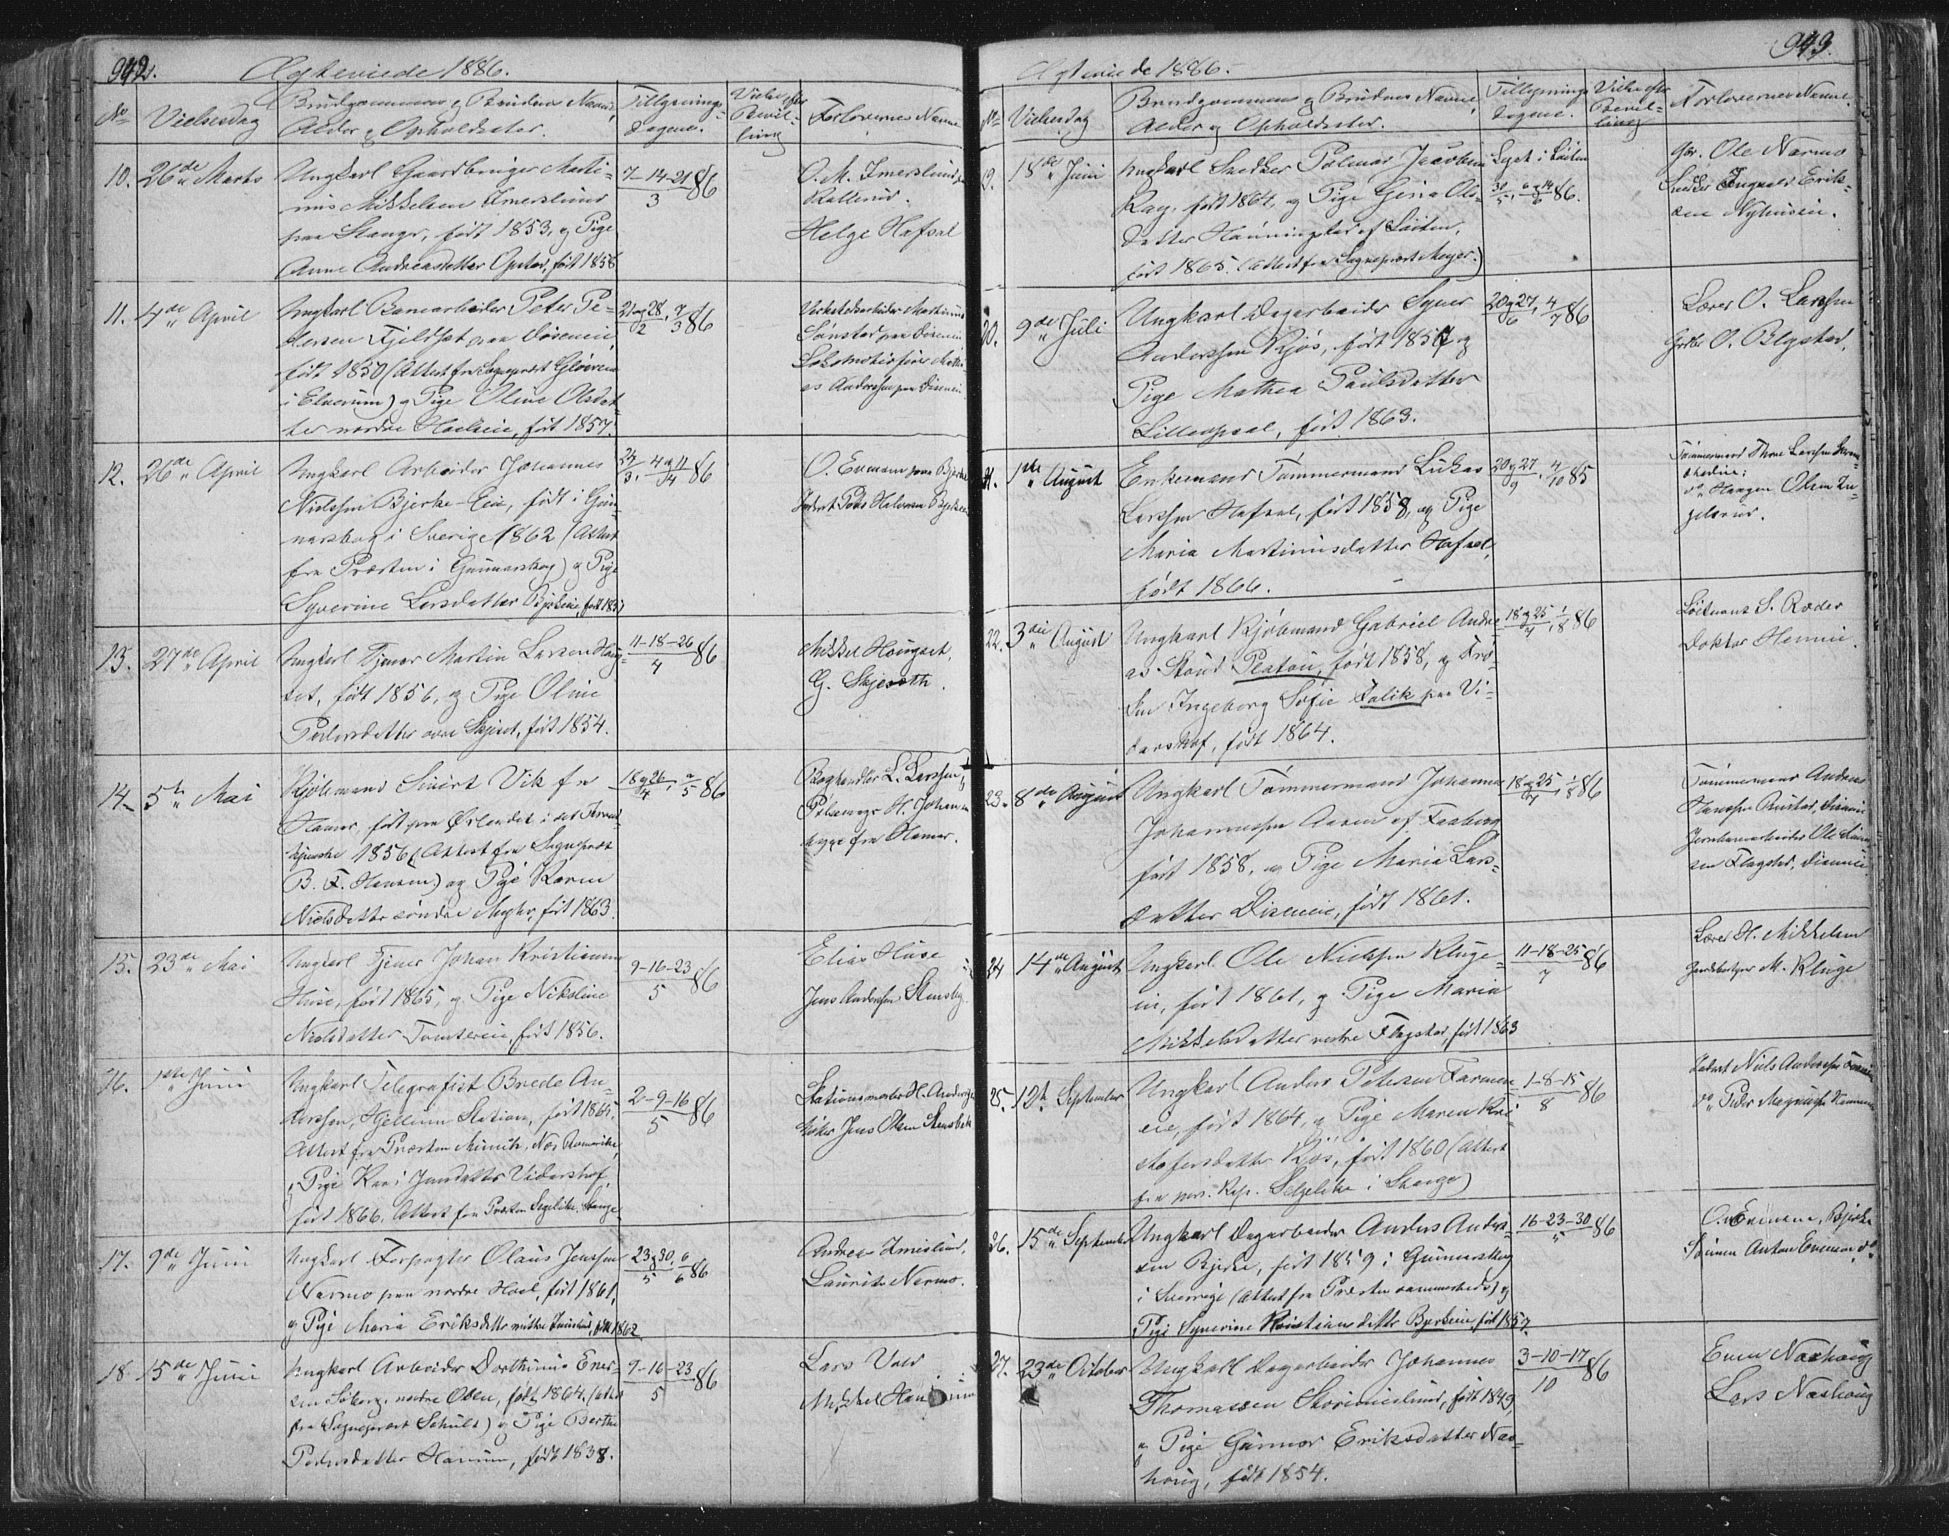 942.
Ægteviede 1886.
No
Vielsesdag
Brudgommens og Brudens Navne,
Alder og Opholdssted.
Tillysnings-
dagene.
Viede efter
Bevil-
ling
Forlovernes Navne
10. 26de Marts
Ungkarl Gaardbruger Marti-
nus Mikkelsen Imerslund
paa Stange, født 1853, og Pige
Anne Andreasdatter Opstad, født 1858
7-14-21/3 86
O. M. Imerslund
Helge Hafsal
11. 4de April
Ungkarl Banearbeider Peter Pe-
dersen Fjeldset paa Diseneie,
født 1850 (Attest fra Sogneprest Glørsen
i Elverum) og Pige Oline Olsdat-
ter nordre Hoeleie, født 1857.
21 og 28/2, 7/3 86
Værkstedsarbeider Martinus
Sønstad paa Diseneie
Lokomotivfører Mathi-
as Andersen paa Diseneie
12. 26de April
Ungkarl Arbeider Johannes
Nielssen Bjerke-Eie, født i Gun-
narskog i Sverige 1862 (Attest
fra Præsten i Gunnarskog) og Pige
Syverine Larsdatter Bjerkeeie, født 1857
4 og 11/4 86
O. Evensen paa Bjerke
13. 27de April
Ungkarl Tjener Martin Larsen Haug-
set, født 1856, og Pige Oline
Pedersdatter øvre Skjeset, født 1854.
11-18-26/4 86
Mikkel Haugset.
G. Skjeseth.
14. 5te Mai
Kjøbmand Sivert Vik fra
Hamar, født paa Ørlandet i det Thrond-
hjemske 1856 (Attest fra Sogneprest
B. F. Hansen) og Pige Karen
Nielsdatter søndre Myhr, født 1863.
18 og 26/4, 2/5 86
Boghandler L. Larssen,
H. Johansen
begge fra Hamar.
15. 23de Mai
Ungkarl Tjener Johan Kristiansen
Huse, født 1865, og Pige Nikoline
Nielsdatter Tomtereie, født 1856.
9-16-23/5 86
Elias Huse
Jens Andersen Stensby
16. 1ste Juni
Ungkarl Telegrafist Brede An-
derssen, Hjellum Station, født 1865,
Attest fra Præsten Münich, Næs Romerike,
og Pige Kari Jensdatter Vidarshof,
født 1866, Attest fra Præsten Segelcke, Stange
2-9-16/5 86
Stationsmester H. Andersen
Jens Olsen Stensbek
17. 9de Juni
Ungkarl Forpagter Olaus Jenssen
Narmo paa nordre Hoel, født 1861,
og Pige Maria Eriksdatter midtre Imerslund, født 1862
23 og 30/5, 6/6 86
Andreas Imerslund,
Laurits Narmo.
18. 15de Juni
Ungkarl Arbeider Dorthinus Ener-
sen Søberg, nordre Olsen, født 1864, (Attest
fra Sogneprest Schult) og Pige Berthe
Pedersdatter Hanum, født 1838.
9-16-23/5 86
Lars Vold
Mikkel Han
943.
Ægteviede 1886.
No
Vielsesdag
Brudgommens og Brudens Navne,
Alder og Opholdssted.
Tillysnings-
dagene.
Viede efter
Bevil-
ling
Forlovernes Navne.
19. 18de Juni
Ungkarl Snedker Palmar Jacobsen
født 1864, og Pige Gina Ols-
datter Hanningstad af Løiten,
født 1865. (Attest fra Sogneprest Meyer.)
Lyst i Løiten
30/5, 6 og 14/6 86.
Gbr. Ole Narmo
Snedker Ingvald Erik-
sen Nyhuseie.
20. 9de Juli
Ungkarl Dagarbeider Syver
Anderssen Kjøs, født 1857 og
Pige Mathea Paulsdatter
Lilleopsal, født 1863.
20 og 27/6, 4/7 86
Lærer O. Larssen
Gbr. O. Blystad.
21. 1ste August
Enkemand Tømmermand Lukas
Larssen Hafsal, født 1858, og Pige
Maria Martinusdatter Hafsal,
født 1866.
20 og 27/9, 4/10 85
Tømmermand Thore Larssen
do Haagen Olsen
22. 3die August
Ungkarl Kjøbmand Gabriel Andre-
as Stoud Platou, født 1858, og Frø-
ken Ingeborg Sofie Falik paa Vi-
darshof, født 1864.
18 og 25/7, 1/8 86
Løitnant S. Roder
Doktor Hennie.
23. 8de August
Ungkarl Tømmermand Johannes
Johannessen Aasen af Faaberg
født 1858, og Pige Maria Lars-
datter Diseneie, født 1861.
18 og 25/7, 1/8 86
Tømmermand Andreas
Hanssen Rustad, Diseneie
Jernbanearbeider Ole
sen Flagstad, Diseneie
24. 14de August
Ungkarl Ole Nielsen Kluge-
eie, født 1861, og Pige Maria
Mikkelsdatter vestre Flagstad, født 1863
11-18-25/7 86
Lærer H. Mikkelsen
Gaardbruger M. Kluge
25. 12te September
Ungkarl Anders Petersen Farmen-
eie, født 1864, og Pige Maren Kri-
stofersdatter Kjøs, født 1860 (Attest
fra pers. Kap. Segelcke i Stange)
1-8-15/8 86
Niels Andersen
do Peder
26. 15de September
Ungkarl Dagarbeider Anders Anders-
sen Bjerke, født 1859 i Gunnarskog
i Sverrige (Attest fra Præsten sammesteds) og
Pige Syverine Kristiansdatter Bjerkeeie, født 1857.
16-23-30/5 86
O. Evensen, Bjerke
Sønnen Anton Evensen, do
27. 23de October
Ungkarl Dagarbeider Johannes
Thomassen Storimerslund, født 1849,
og Pige Gunnor Eriksdatter Nas-
houg, født 1854.
3-10-17/10 86
Even Nashoug
Lars Nashoug